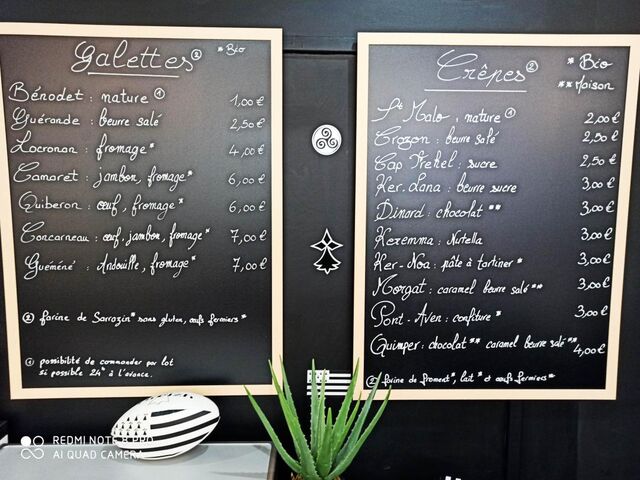 Galettes ② * Bio
Bénodet : nature ① 1,00 €
Guérande : beurre salé 2,50 €
Locronan : fromage* 4,00 €
Camaret : jambon, fromage* 6,00 €
Quiberon : œuf, fromage* 6,00 €
Concarneau : œuf, jambon, fromage* 7,00 €
Guémené : Andouille, fromage* 7,00 €
② farine de Sarrazin* sans gluten, œufs fermiers*
① possibilité de commander par lot
si possible 24h à l'avance.
Crêpes ② * Bio
** Maison
St Malo : nature ① 2,00 €
Crozon : beurre salé 2,50 €
Cap Frehel : sucre 2,50 €
Ker-Lana : beurre sucre 3,00 €
Dinard : chocolat ** 3,00 €
Keremma : Nutella 3,00 €
Ker-Noa : pâte à tartiner * 3,00 €
Morgat : caramel beurre salé ** 3,00 €
Pont-Aven : confiture * 3,00 €
Quimper : chocolat ** caramel beurre salé ** 4,00 €
② farine de froment*, lait * et œufs fermiers*
REDMI NOTE 8 PRO
AI QUAD CAMERA